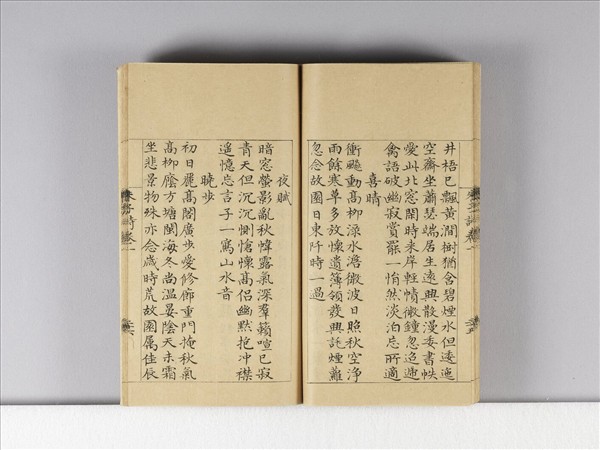 井梧已飄黃澗樹猶含碧煙水但逶迤
空齋坐蕭瑟端居生遠興散漫委書帙
愛此北窓閒時來岸輕幘微鐘忽迢遞
禽語破幽寂賞罷一悄然淡泊忘所適
喜晴
衝飈動高柳淥水澹微波日照秋空淨
雨餘寒草多放懷遺簿領發興託煙蘿
忽念故園日東阡時一過
夜賦
暗窓螢影亂秋幃露氣深羣籟喧已寂
青天但沉沉惻愴懷高侶幽默抱冲襟
遙憶忘言子一寫山水音
曉步
初日麗高閣廣步愛修廊重門掩秋氣
高柳蔭方塘閩海冬尚溫晏陰天未霜
坐悲景物殊亦念歲時荒故園屬佳辰